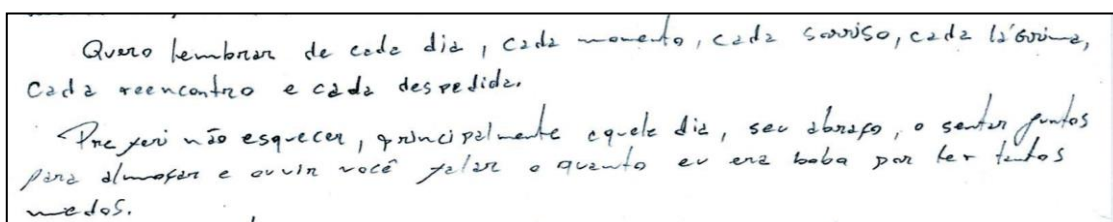 Quero lembrar de cada dia, cada momento, cada sorriso, cada lágrima,
cada reencontro e cada despedida.
Preferi não esquecer, principalmente aquele dia, seu abraço, o sentar juntos
para almoçar e ouvir você falar o quanto eu era boba por ter tantos
medos.